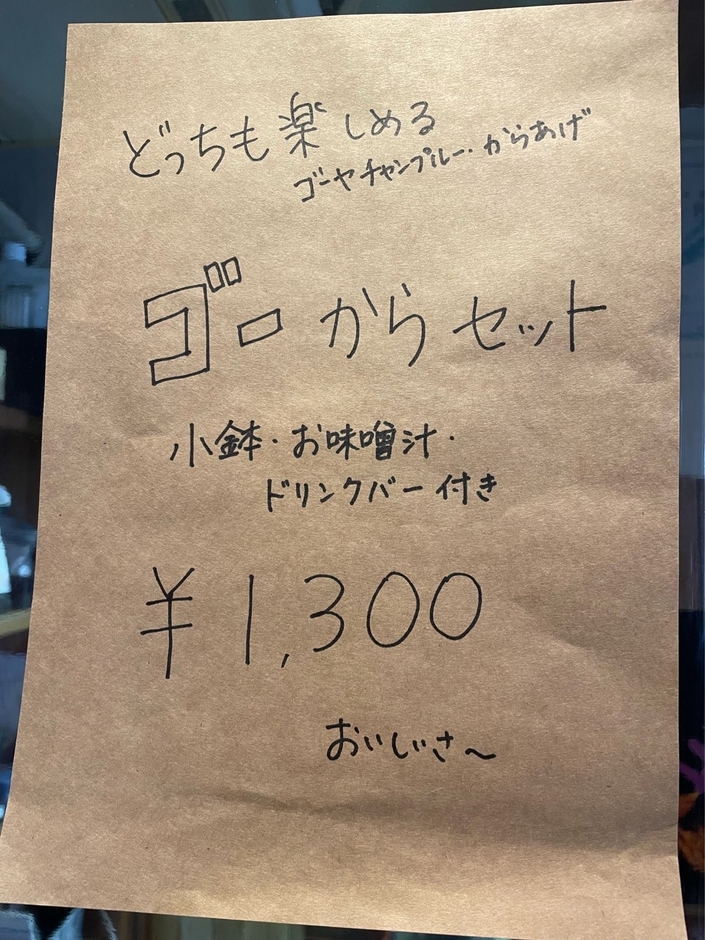 どっちも楽しめる
ゴーヤチャンプルー・からあげ
ゴーからセット
小鉢・お味噌汁・
ドリンクバー付き
¥1,300
おいしいさ〜